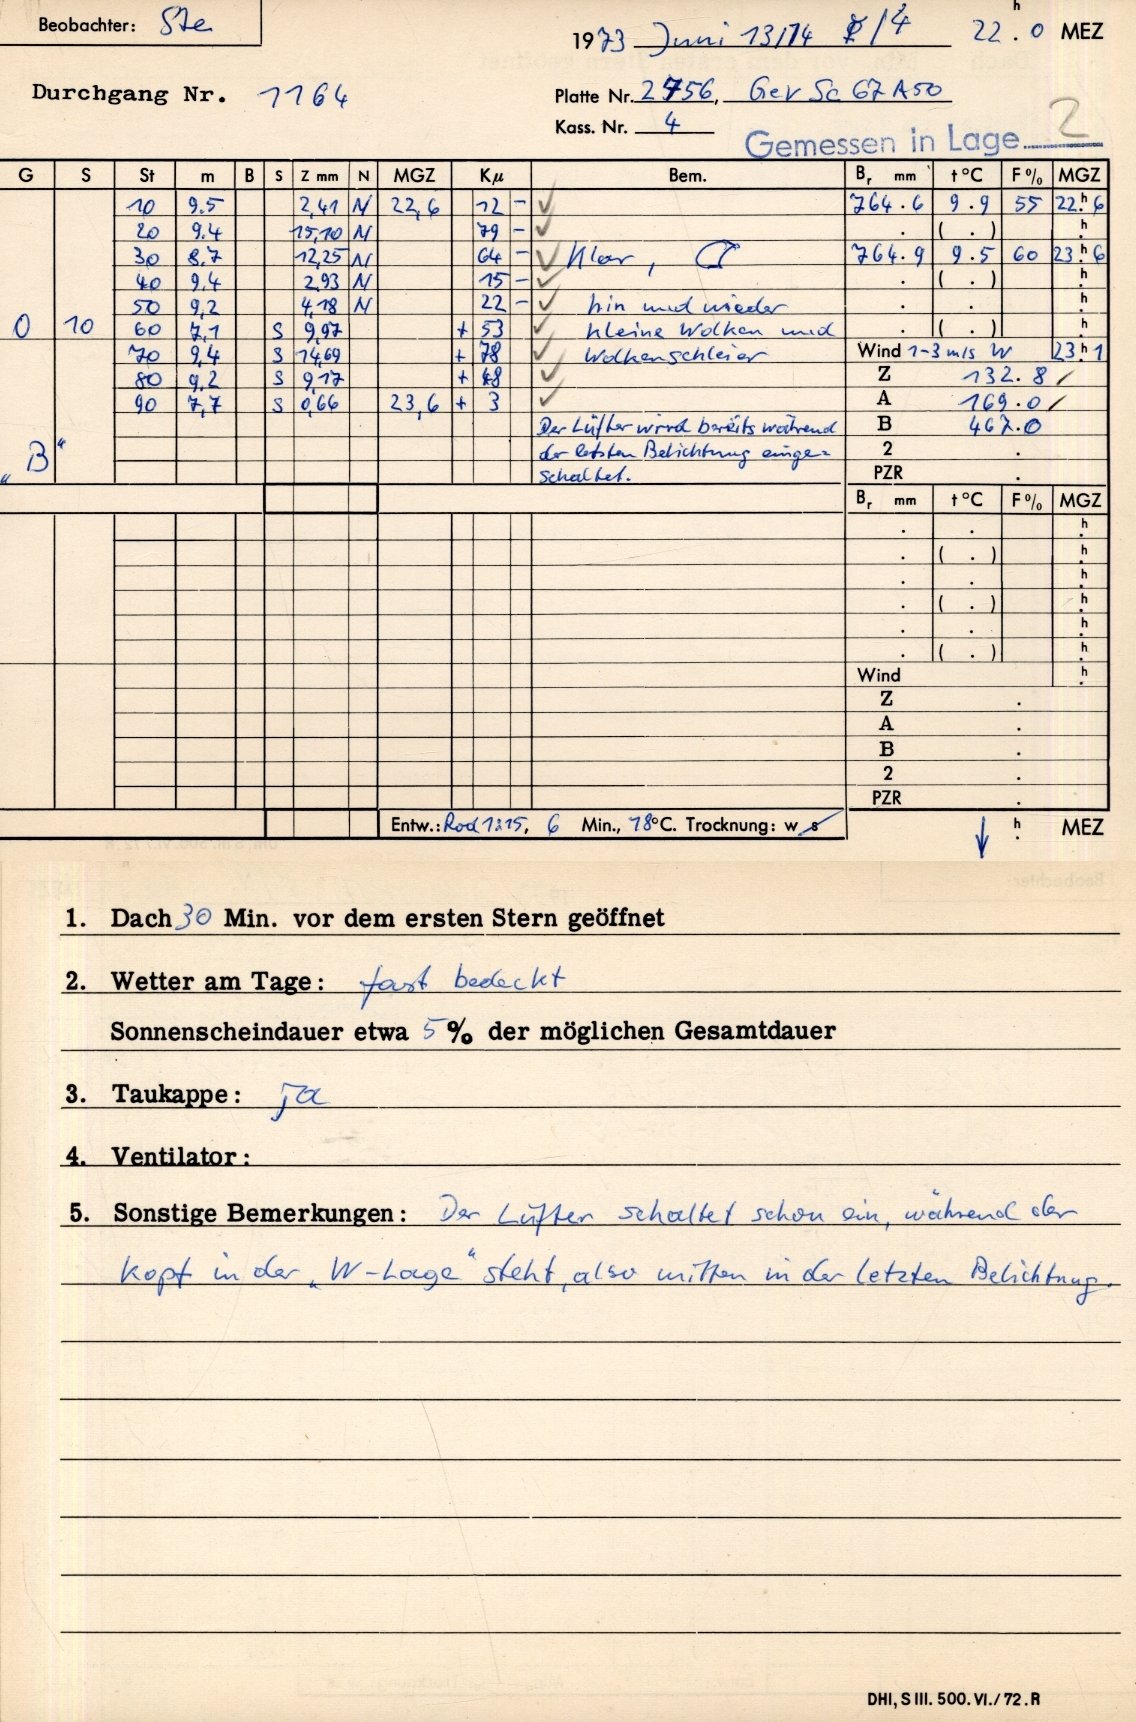 Beobachter: Ste
1973 Juni 13/14 /4 22.h0 MEZ
Durchgang Nr. 1164
Platte Nr. 2756, Gev Sc 67 A 50
Kass. Nr. 4
Gemessen in Lage 2
G S St m B S Z mm N MGZ Kμ Bem. Br mm t °C F % MGZ
10 9.5 2,41 N 22,6 12 - 764.6 9.9 55 22.h6
20 9.4 15,10 N 79 - . ( . ) h.
30 8.7 12,25 N 64 - Klar, 764.9 9.5 60 23.h6
40 9.4 2.93 N 15 - . ( . ) h.
50 9,2 4,18 N 22 - hin und wieder . . h.
0 10 60 7,1 S 9,97 + 53 kleine Wolken und . ( . ) h.
70 9,4 S 14,69 + 78 Wolkenschleier Wind 1-3 m/s W 23.h1
80 9,2 S 9,17 + 48 Z 132.8
90 7,7 S 0,66 23,6 + 3 A 169.0
Der Lüfter wird bereits während B 467.0
„B“ der letzten Belichtung einge= 2 .
schaltet. PZR .
Br mm t °C F % MGZ
. . h.
. ( . ) h.
. . h.
. ( . ) h.
. . h.
. ( . ) h.
Wind h.
Z .
A .
B .
2 .
PZR .
Entw.: Rod 1:25, 6 Min., 18°C. Trocknung: w s ↓ h. MEZ
1. Dach 30 Min. vor dem ersten Stern geöffnet
2. Wetter am Tage: fast bedeckt
Sonnenscheindauer etwa 5 % der möglichen Gesamtdauer
3. Taukappe: ja
4. Ventilator:
5. Sonstige Bemerkungen: Der Lüfter schaltet schon ein, während der
Kopf in der „W-Lage“ steht, also mitten in der letzten Belichtung.
DHI, S III. 500. VI./72. R